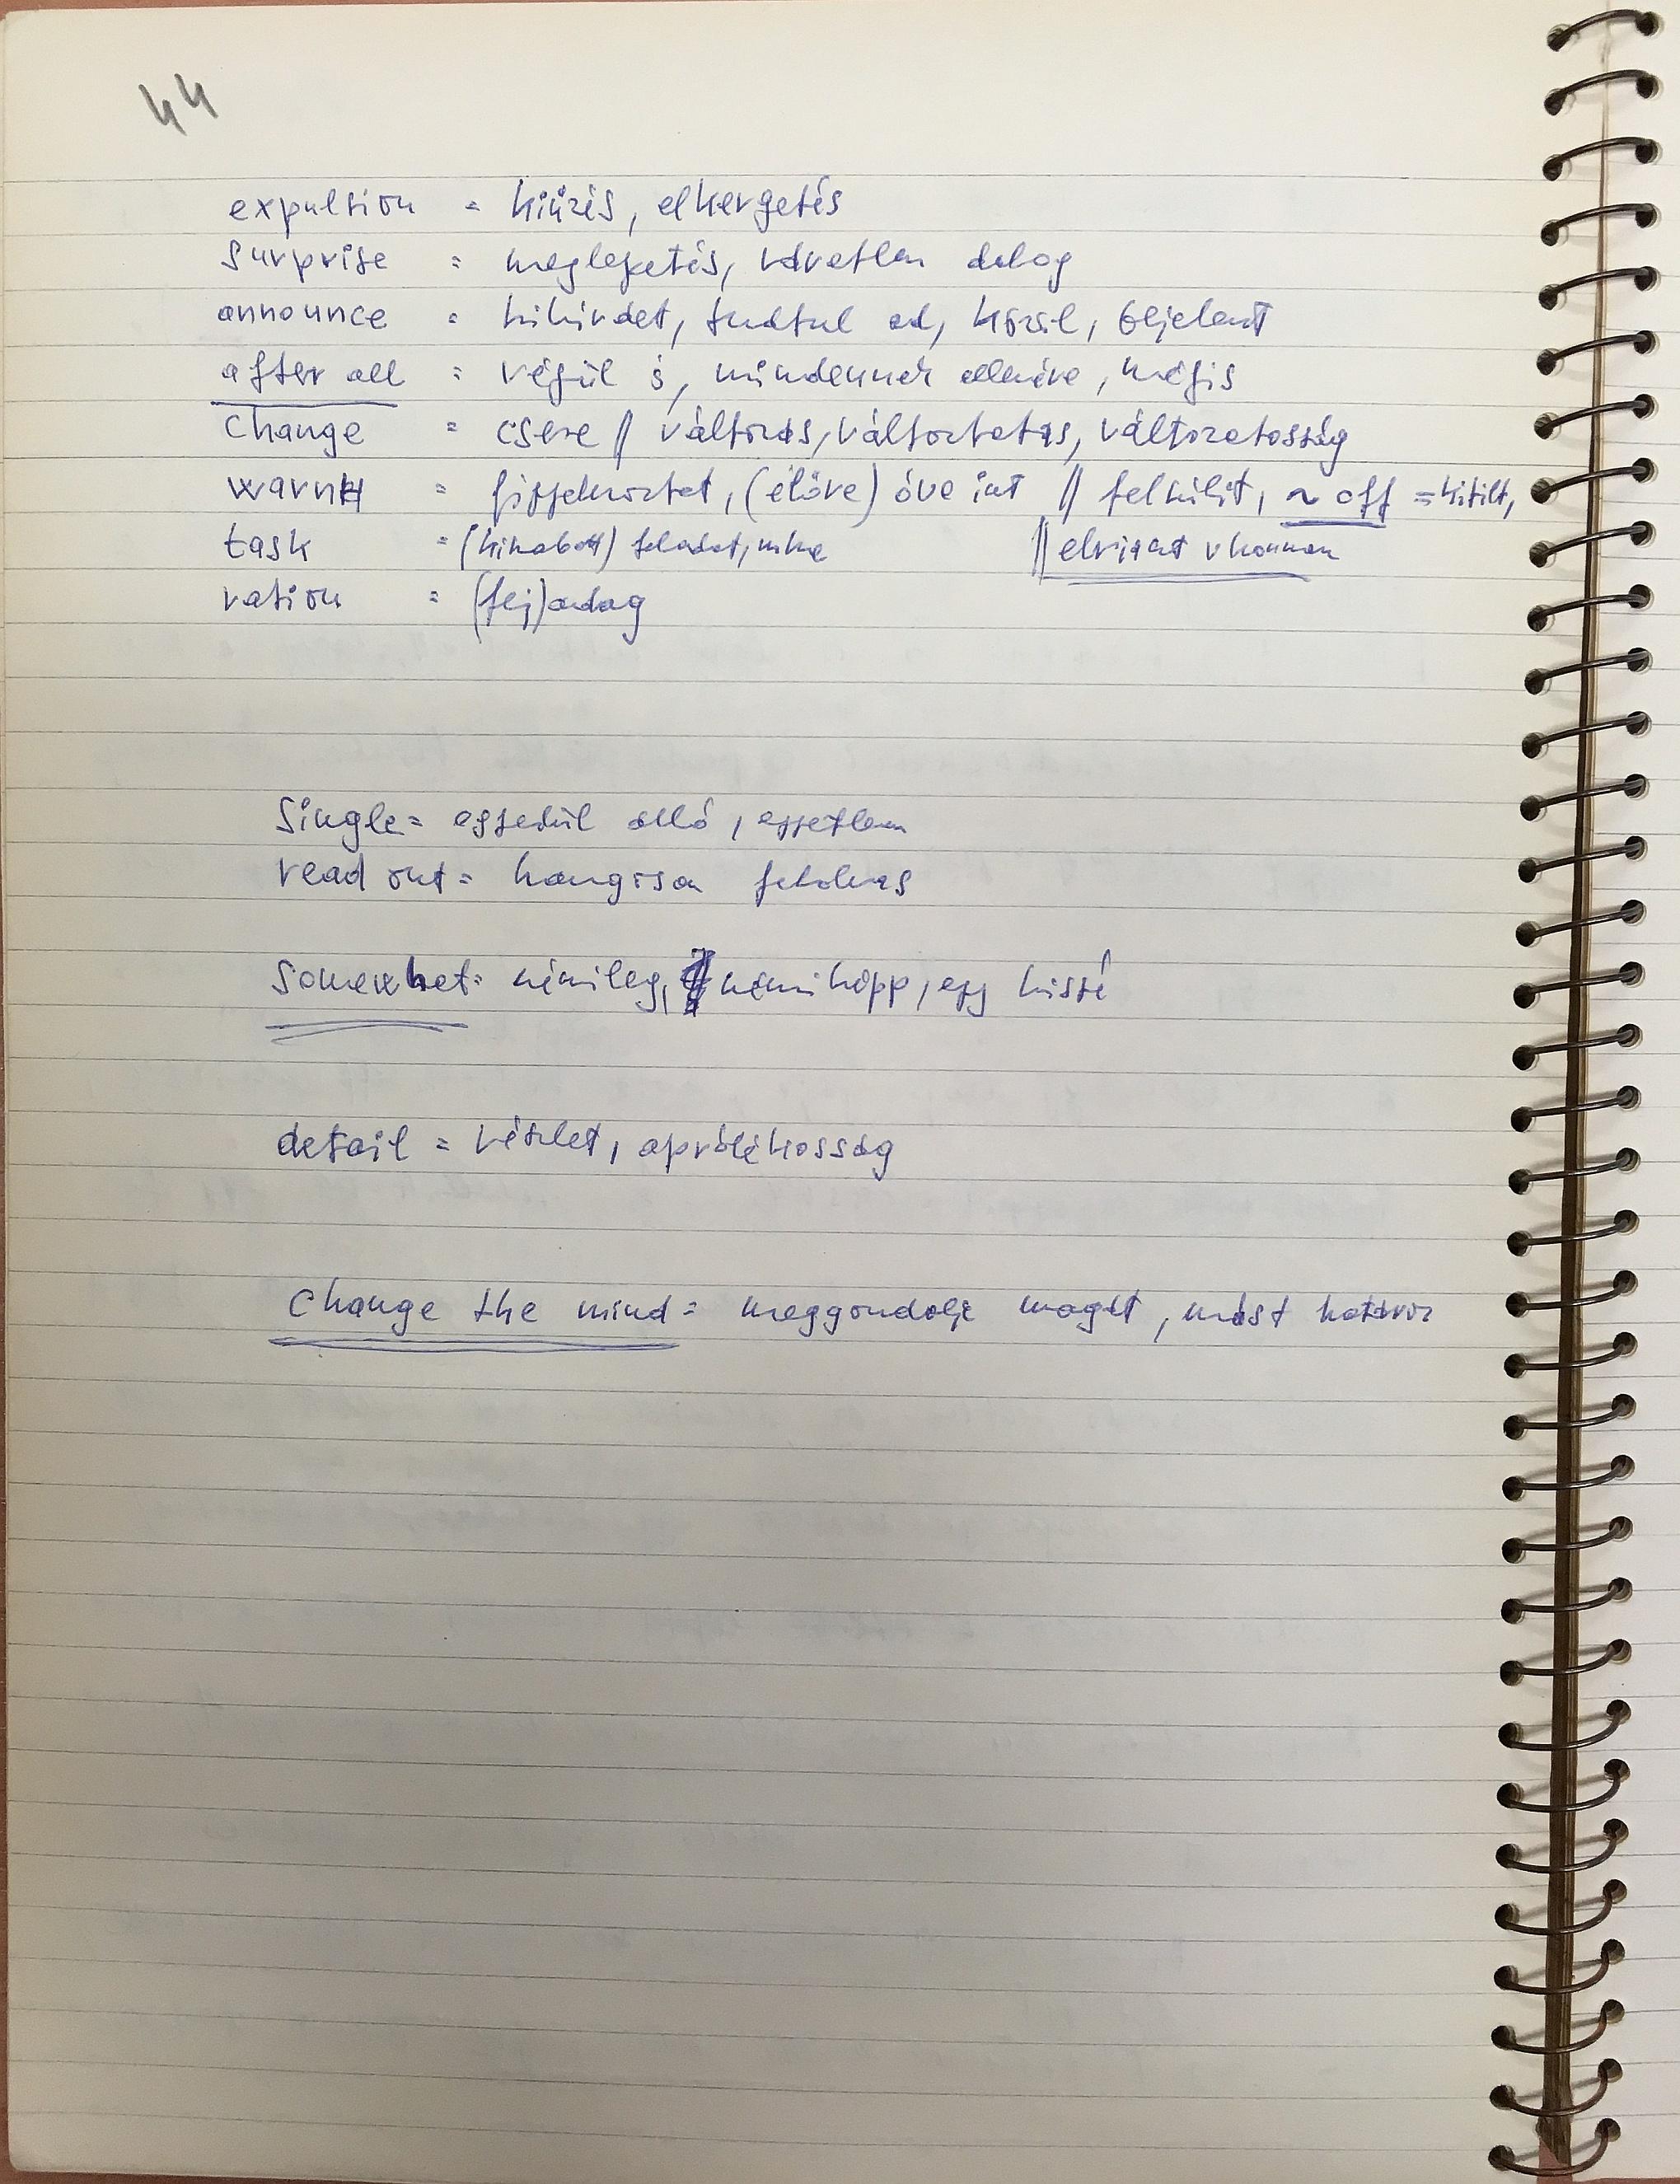 44
expulsion = kiűzés, elkergetés
surprise = meglepetés, váratlan dolog
announce = kihirdet, tudtul ad, közöl, bejelent
after all = végül is, mindennek ellenére, mégis
change = csere // változás, változtatás, változatosság
warn = figyelmeztet, (előre) óva int // felkiált, ~ off = kitilt,
task = (kiszabott) feladat, munka // elriaszt vhonnan
ration = (fej)adag
Single = egyedül álló, egyetlen
read out = hangosan felolvas
Somewhat = némileg, némiképp, egy kissé
detail = részlet, aprólékosság
Change the mind = meggondolja magát, mást határoz